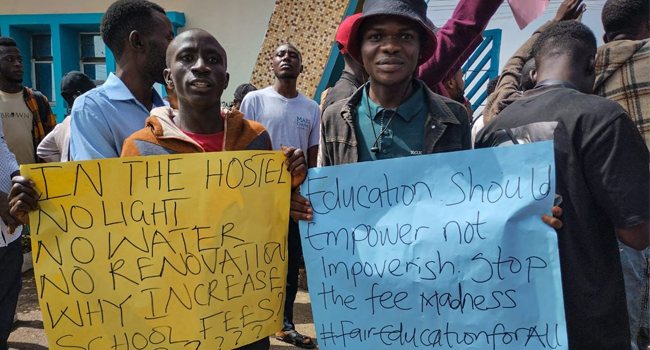 IN THE HOSTEL
NO LIGHT
NO WATER
NO RENOVATION
WHY INCREASE
SCHOOL FEES?
Education Should
Empower not
Impoverish. Stop
the fee madness
#faireducationforAll